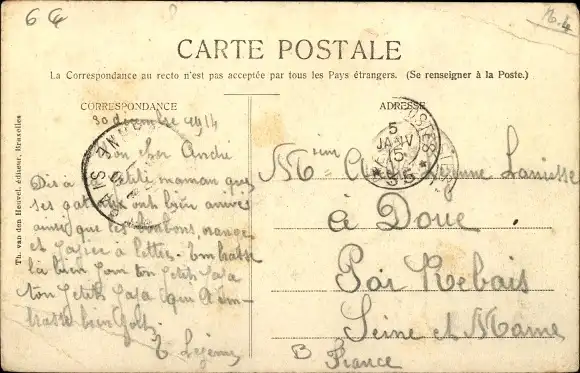 6
CARTE POSTALE
La Correspondance au recto n'est pas acceptée par tous les Pays étrangers. (Se renseigner à la Poste.)
CORRESPONDANCE
30 décembre 1914
Mon cher André
Dis à ta petite maman que
ses gateaux ont bien arrivés
ainsi que les bonbons, orange
et papier à lettre. Embrasse
la bien pour ton petit papa
ton petit papa qui t'em-
brasse bien fort.
Lejeune
Th. van den Heuvel, éditeur, Bruxelles
ADRESSE
POSTES
5
JANV
15
Mme
Lejeune
à Doue
Par Rebais
Seine et Marne
France